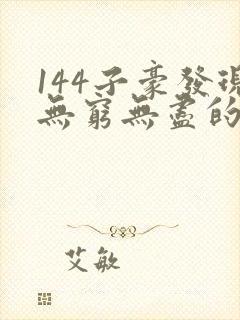 144子豪發現
無窮無盡的
艾敏